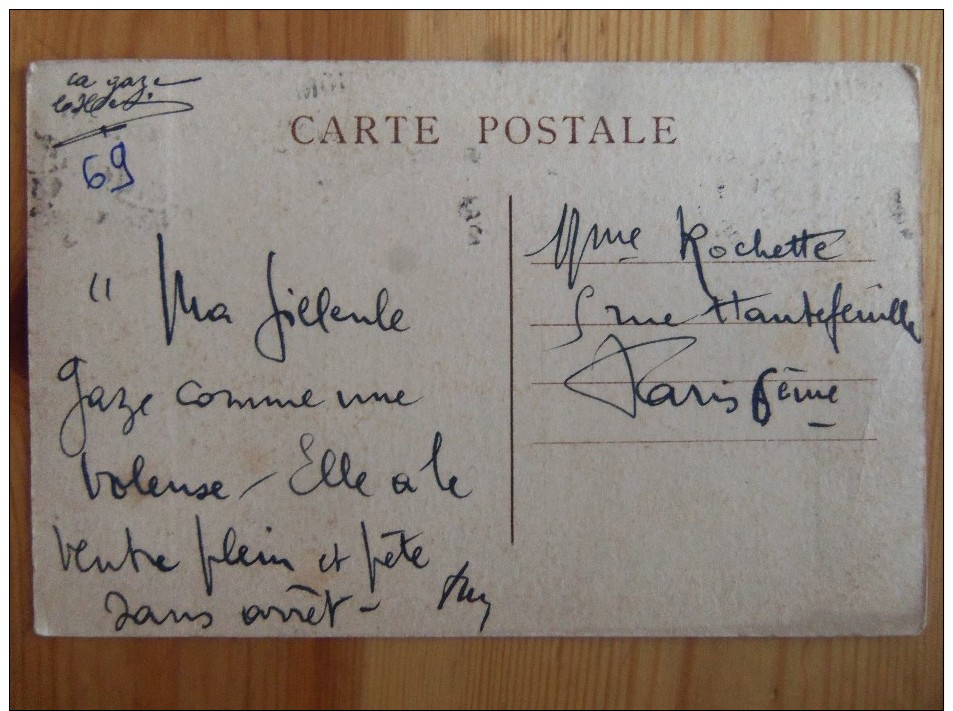 ca gaze
69
CARTE POSTALE
" Ma filleule
gaze comme une
voleuse - Elle a le
ventre plein et pète
sans arrêt -
Mme Rochette
5 rue Hautefeuille
Paris 6ème